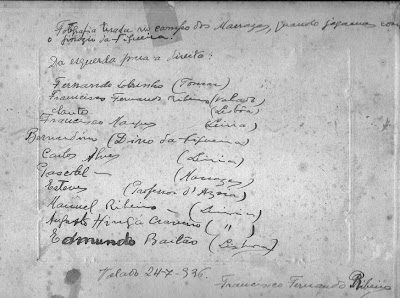 Fotografia tirada no campo dos Marrazes, quando jogamos com
o Ginásio da Figueira.
Da esquerda para a direita:
Fernando Sobrinho (Tomar)
Francisco Fernando Ribeiro (Valado)
(Lisboa)
Francisco Marques (Leiria)
Bernardino (Diário da Figueira)
Carlos Alves (Leiria)
Pascoal — (Marrazes)
Esteves (Professor d'Agora)
Manuel Ribeiro — (Leiria)
Augusto Craveiro ( " )
Edmundo Bailão (Lisboa)
Valado 24-7-936.
Francisco Fernando Ribeiro